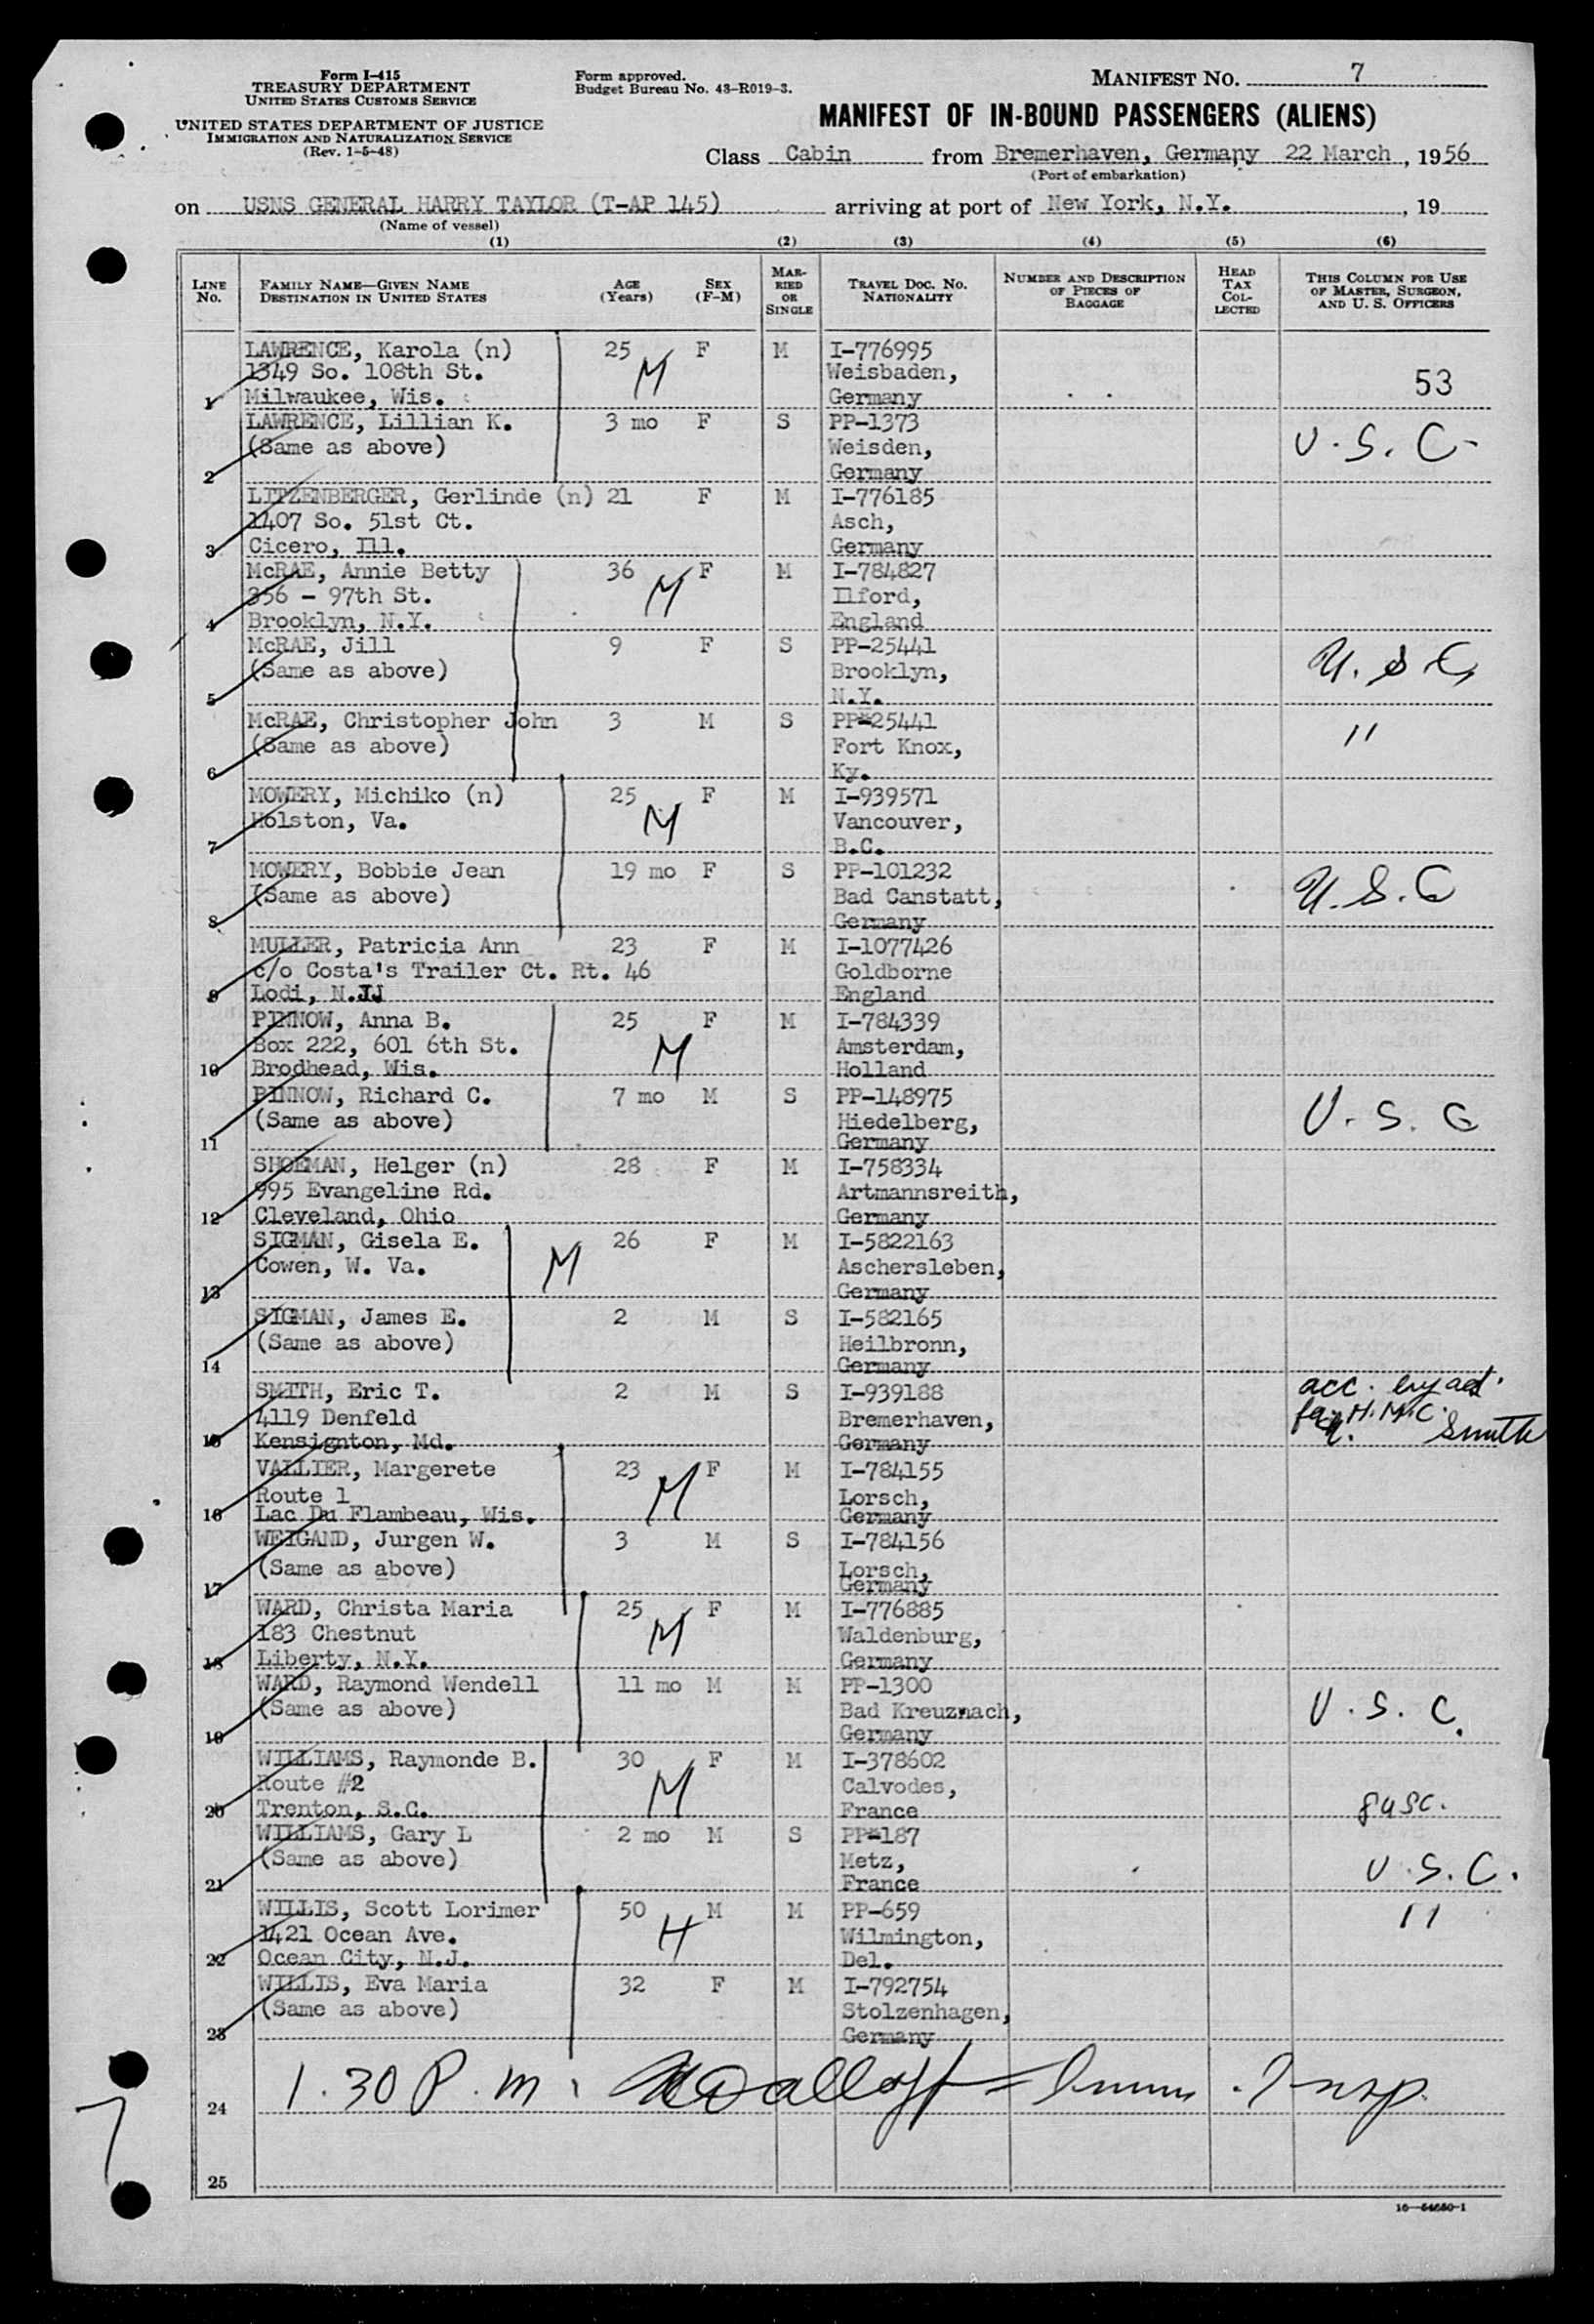 Form I-415
TREASURY DEPARTMENT
UNITED STATES CUSTOMS SERVICE
UNITED STATES DEPARTMENT OF JUSTICE
IMMIGRATION AND NATURALIZATION SERVICE
(Rev. 1-5-48)
Form approved.
Budget Bureau No. 43-R019-3.
MANIFEST NO. 7
MANIFEST OF IN-BOUND PASSENGERS (ALIENS)
Class Cabin from Bremerhaven, Germany 22 March, 1956
(Port of embarkation)
on USNS GENERAL HARRY TAYLOR (T-AP 145) arriving at port of New York, N.Y., 19
(Name of vessel)
(1) (2) (3) (4) (5) (6)
LINE No. FAMILY NAME—GIVEN NAME DESTINATION IN UNITED STATES AGE (Years) SEX (F-M) MARRIED OR SINGLE TRAVEL DOC. NO. NATIONALITY NUMBER AND DESCRIPTION OF PIECES OF BAGGAGE HEAD TAX COLLECTED THIS COLUMN FOR USE OF MASTER, SURGEON, AND U. S. OFFICERS
LAWRENCE, Karola (n) 25 F M I-776995
1349 So. 108th St. M Weisbaden,
1 Milwaukee, Wis. Germany 53
LAWRENCE, Lillian K. 3 mo F S PP-1373
(Same as above) Weisden, U.S.C.
2 Germany
LITZENBERGER, Gerlinde (n) 21 F M I-776185
1407 So. 51st Ct. Asch,
3 Cicero, Ill. Germany
McRAE, Annie Betty 36 F M I-784827
356 - 97th St. M Ilford,
4 Brooklyn, N.Y. England
McRAE, Jill 9 F S PP-25441
(Same as above) Brooklyn, U.S.C.
5 N.Y.
McRAE, Christopher John 3 M S PP-25441
(Same as above) Fort Knox, "
6 Ky.
MOWERY, Michiko (n) 25 F M I-939571
Holston, Va. M Vancouver,
7 B.C.
MOWERY, Bobbie Jean 19 mo F S PP-101232
(Same as above) Bad Canstatt, U.S.C
8 Germany
MULLER, Patricia Ann 23 F M I-1077426
c/o Costa's Trailer Ct. Rt. 46 Goldborne
9 Lodi, N.JJ England
PINNOW, Anna B. 25 F M I-784339
Box 222, 601 6th St. M Amsterdam,
10 Brodhead, Wis. Holland
PINNOW, Richard C. 7 mo M S PP-148975
(Same as above) Hiedelberg, U.S.C
11 Germany
SHOEMAN, Helger (n) 28 F M I-758334
995 Evangeline Rd. Artmannsreith,
12 Cleveland, Ohio Germany
SIGMAN, Gisela E. 26 F M I-5822163
Cowen, W. Va. M Aschersleben,
13 Germany
SIGMAN, James E. 2 M S I-582165
(Same as above) Heilbronn,
14 Germany
SMITH, Eric T. 2 M S I-939188 acc.
4119 Denfeld Bremerhaven, H.M.C.
15 Kensignton, Md. Germany Smith
VALLIER, Margerete 23 F M I-784155
Route 1 M Lorsch,
16 Lac Du Flambeau, Wis. Germany
WEIGAND, Jurgen W. 3 M S I-784156
(Same as above) Lorsch,
17 Germany
WARD, Christa Maria 25 F M I-776885
183 Chestnut M Waldenburg,
18 Liberty, N.Y. Germany
WARD, Raymond Wendell 11 mo M M PP-1300
(Same as above) Bad Kreuznach, U.S.C.
19 Germany
WILLIAMS, Raymonde B. 30 F M I-378602
Route #2 M Calvodes,
20 Trenton, S.C. France
WILLIAMS, Gary L 2 mo M S PP-187
(Same as above) Metz, U.S.C.
21 France
WILLIS, Scott Lorimer 50 M M PP-659 "
1421 Ocean Ave. H Wilmington,
22 Ocean City, N.J. Del.
WILLIS, Eva Maria 32 F M I-792754
(Same as above) Stolzenhagen,
23 Germany
24 1.30 P.m. Immn. Insp.
7
25